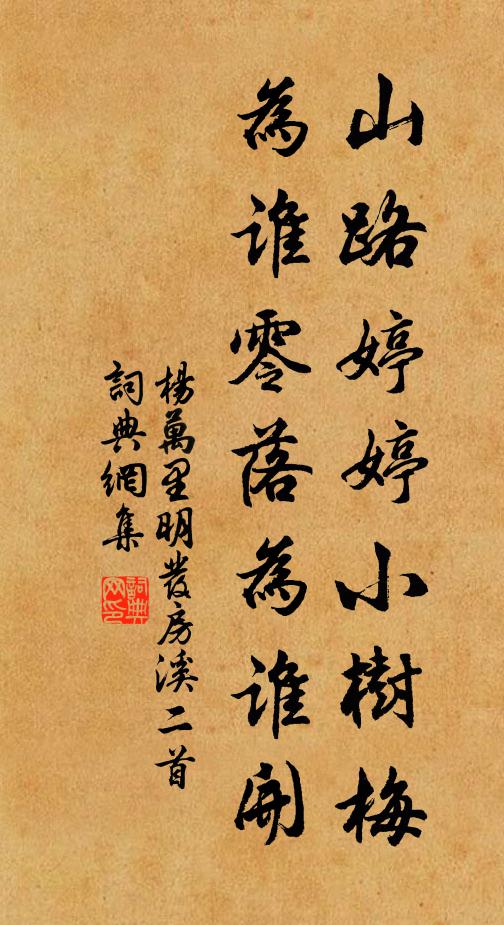 山路婷婷小樹梅
為誰零落為誰開
楊萬里明發房溪二首
詞典網集
詞典網印